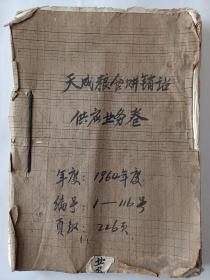 天成粮食供销站
供应业务卷
年度：1964年度
编号：1—116号
页数：226页